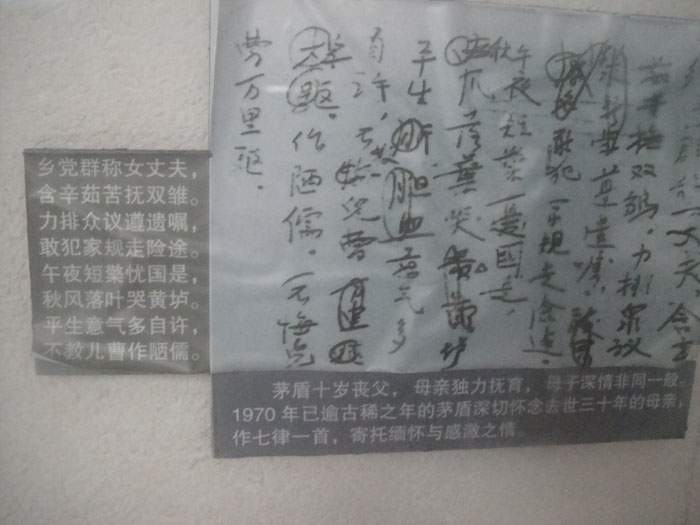 丈夫,含辛
茹苦抚双雏,力排众议
遵遗嘱,
敢犯家规走险途,
午夜短檠忧国是,
落叶哭黄垆
平生意气多
自许,儿曹
作陋儒。不悔
劳万里驱.
乡党群称女丈夫,
含辛茹苦抚双雏。
力排众议遵遗嘱,
敢犯家规走险途。
午夜短檠忧国是,
秋风落叶哭黄垆。
平生意气多自许,
不教儿曹作陋儒。
茅盾十岁丧父,母亲独力抚育,母子深情非同一般。
1970年已逾古稀之年的茅盾深切怀念去世三十年的母亲,
作七律一首,寄托缅怀与感激之情。